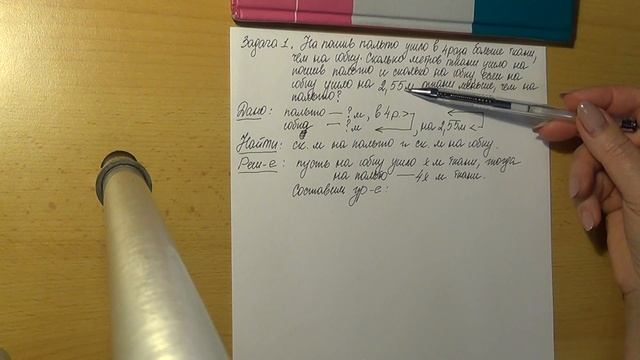 Задача 1. На пошив пальто ушло в 4 раза больше ткани,
чем на юбку. Сколько метров ткани ушло на
пошив пальто и сколько на юбку, если на
юбку ушло на 2,55м ткани меньше, чем на
пальто?
Дано: пальто — ? м, в 4 р. >
юбка — ? м , на 2,55м <
Найти: ск. м на пальто и ск. м на юбку.
Реш-е: пусть на юбку ушло x м ткани, тогда
на пальто — 4x м ткани.
Составим ур-е: